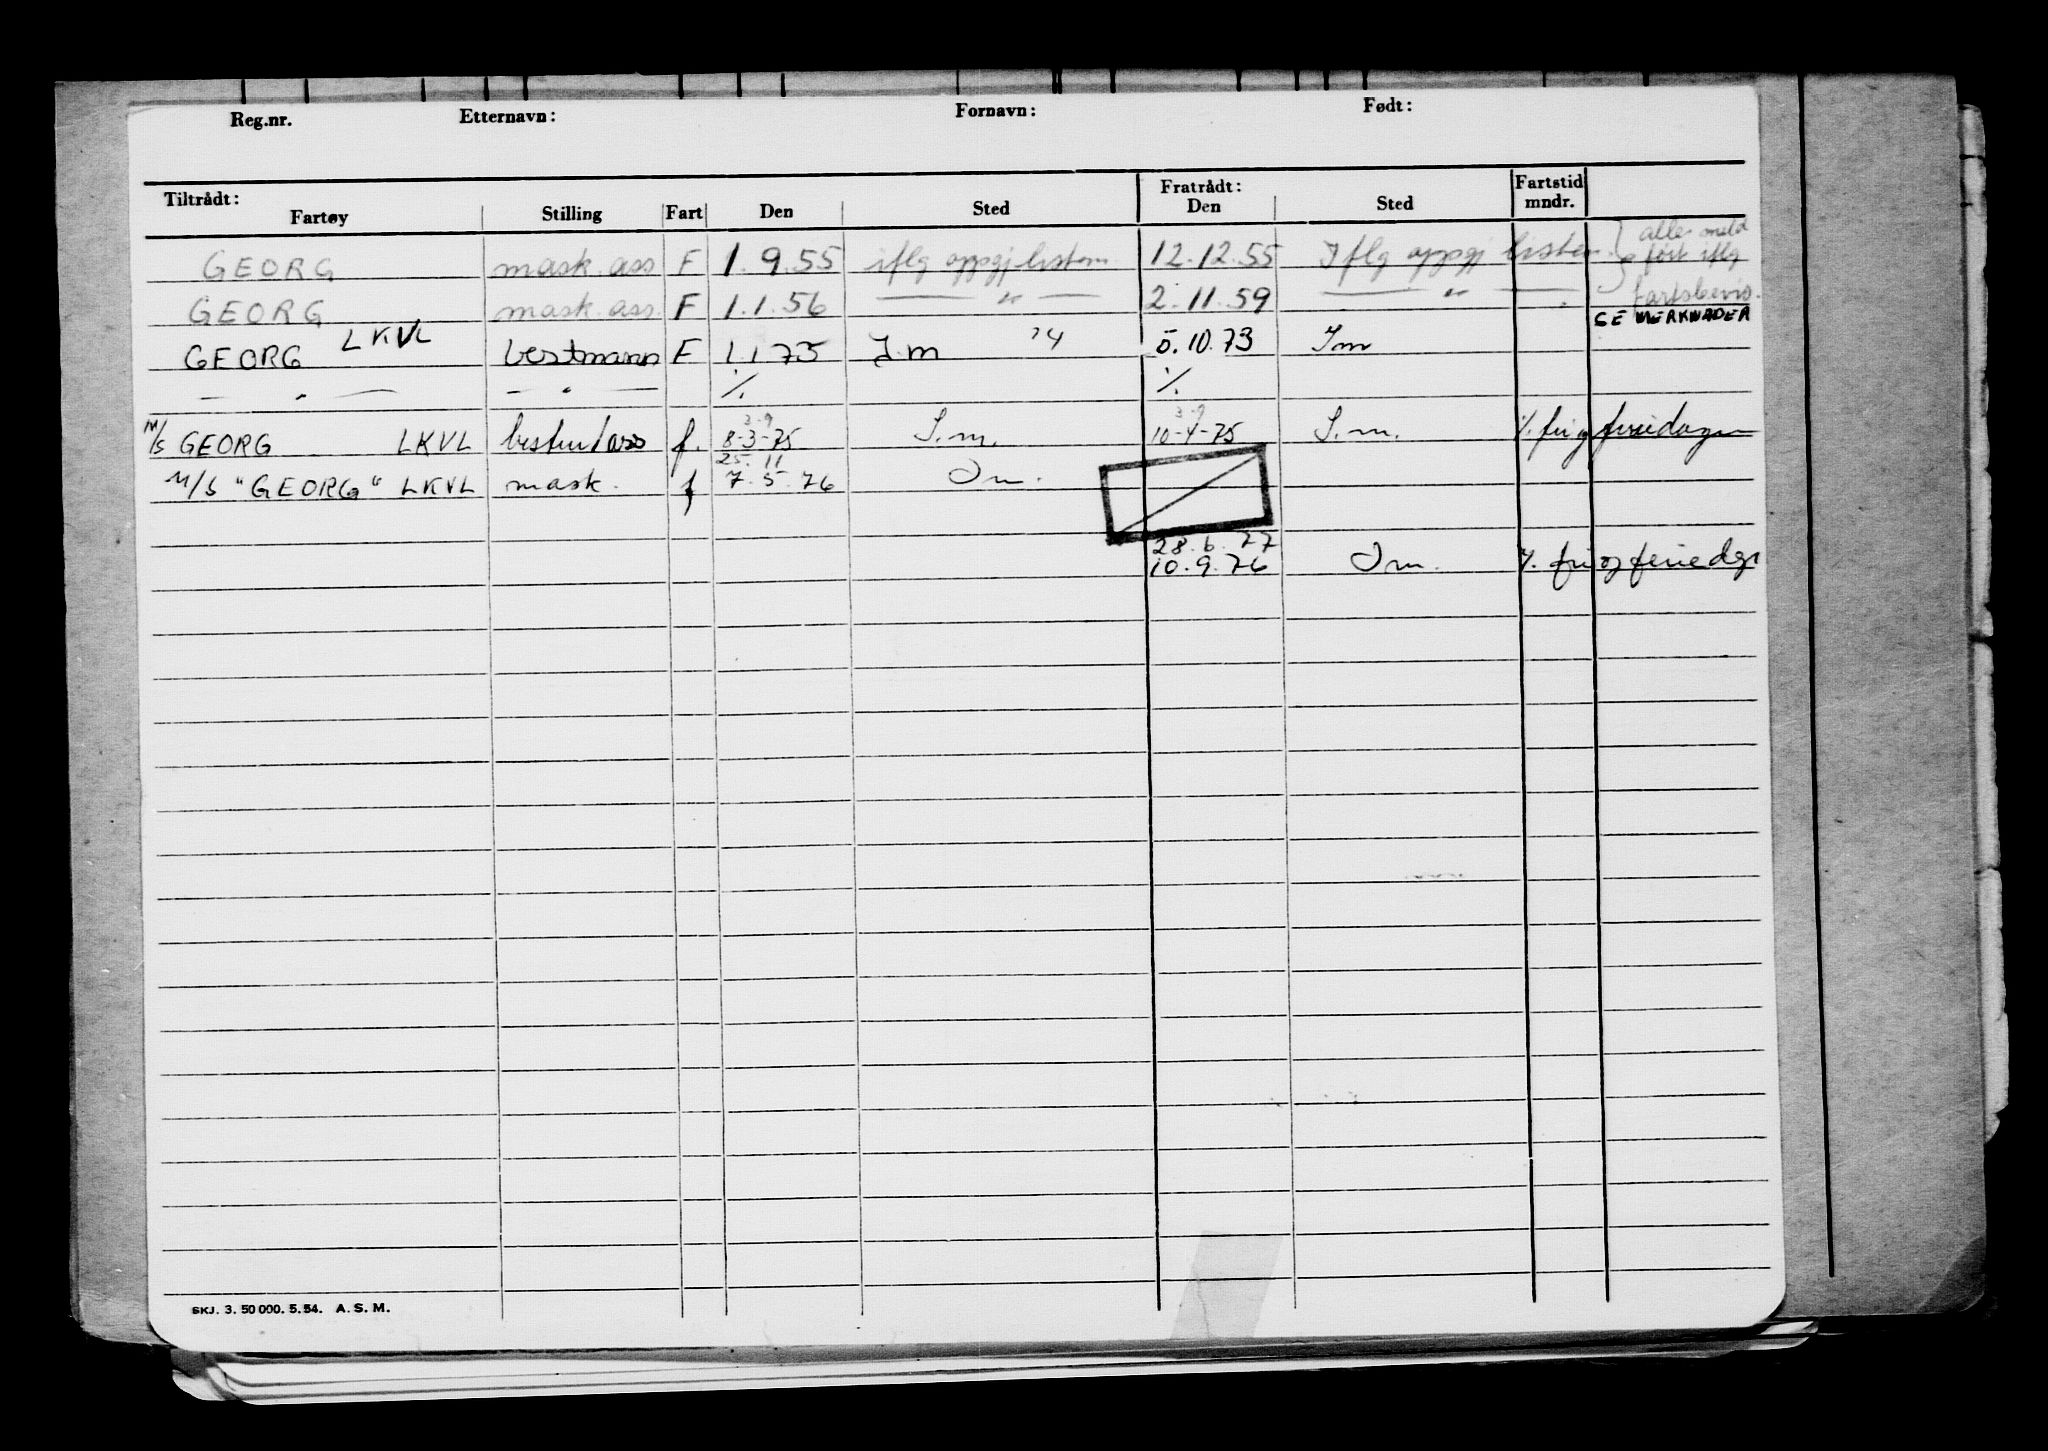 Reg.nr. Etternavn: Fornavn: Født:
Tiltrådt: Fratrådt: Fartstid
Fartøy Stilling Fart Den Sted Den Sted mndr.
GEORG mask. ass F 1.9.55 iflg oppgj listen. 12.12.55 Iflg oppgj listen. } alle meld
ført iflg
GEORG mask. ass. F 1.1.56 — " — 2.11.59 — " — fartsbevis.
SE MERKNADER
GEORG LKVL bestmann F 1.1 73 I.m '4 5.10.73 Im
— " — — " — %. %.
3-9 3-9
M/S GEORG LKVL bestm/ass f. 8-3-75 I.m. 10-4-75 I.m. %. fri og feriedager
25. 11
M/S "GEORG" LKVL mask. f 7.5.76 Im.
28.6.77
10.9.76 Im. %. fri og feriedgr
SKJ. 3. 50 000. 5. 54. A. S. M.